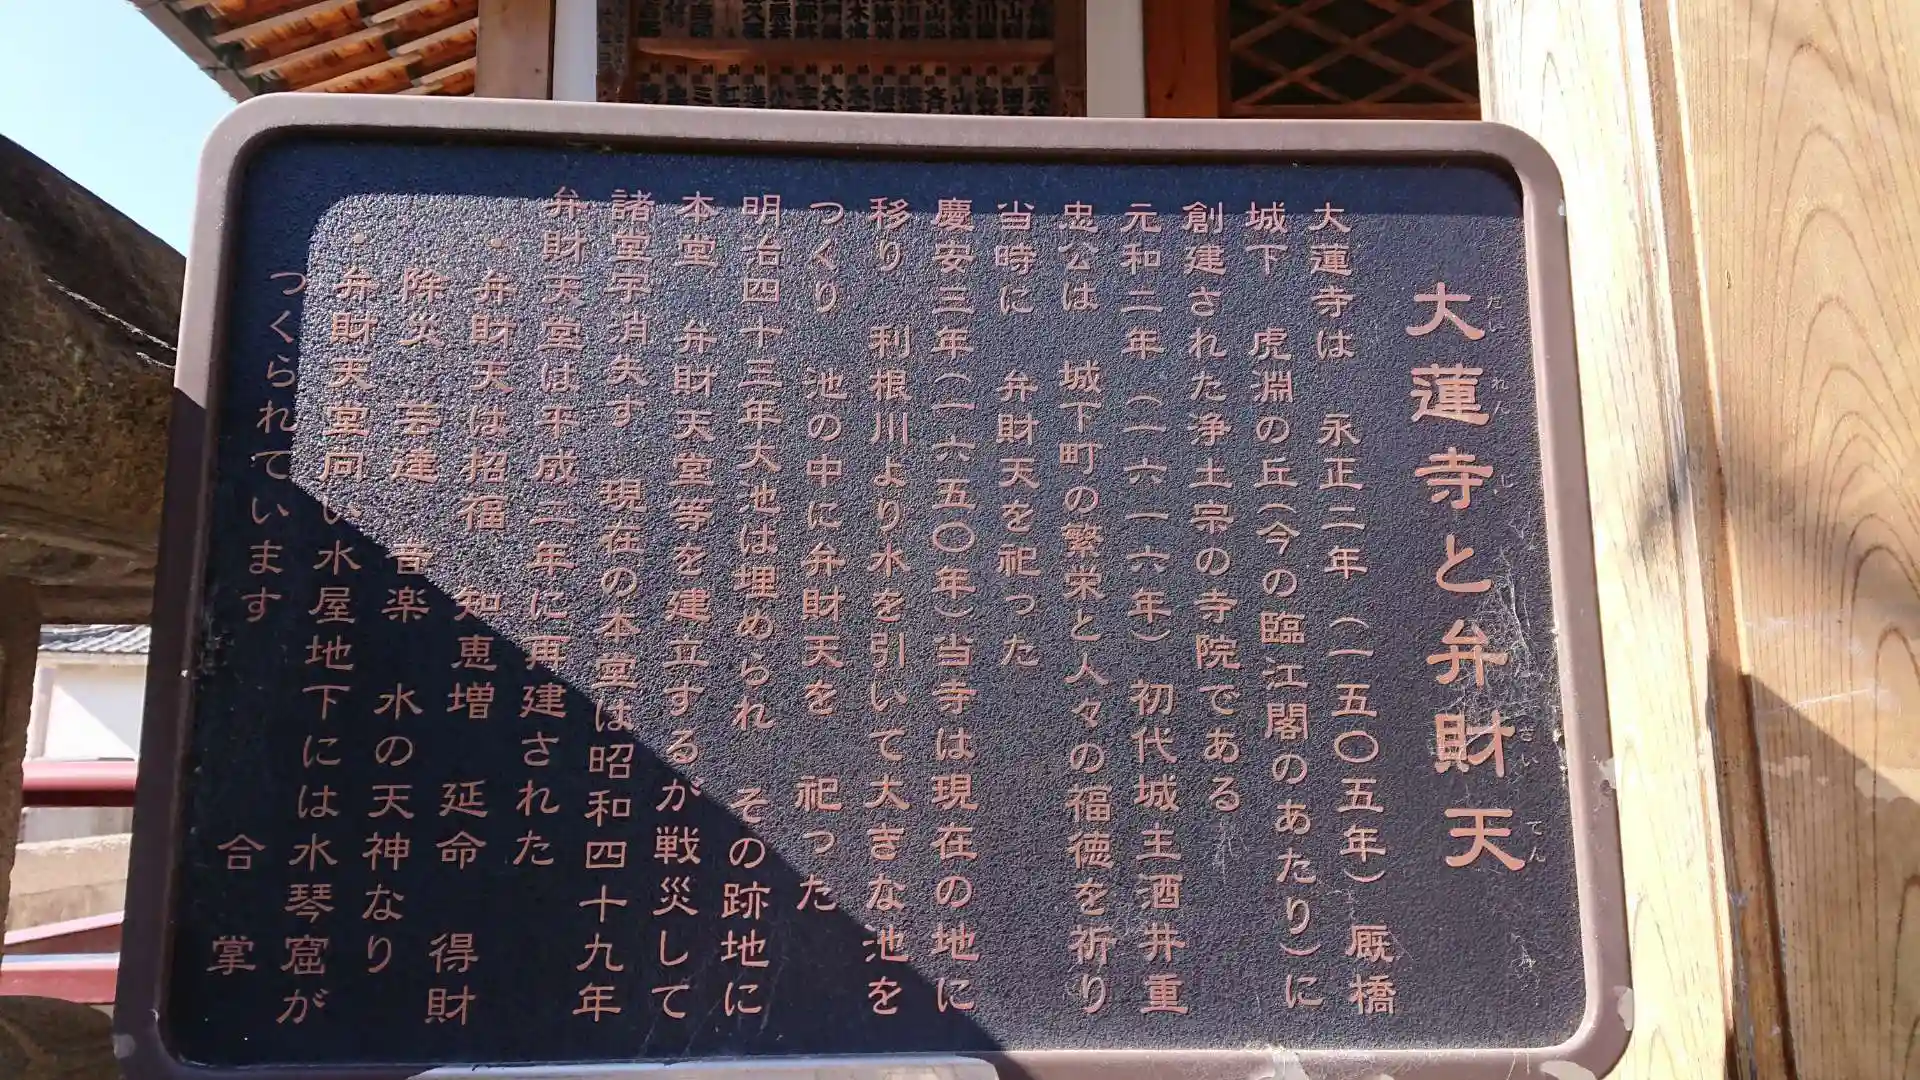 大蓮寺と弁財天
だいれんじ べんざいてん
大蓮寺は 永正二年(一五〇五年)厩橋
城下 虎淵の丘(今の臨江閣のあたり)に
創建された浄土宗の寺院である
元和二年(一六一六年)初代城主酒井重
忠公は 城下町の繁栄と人々の福徳を祈り
当時に 弁財天を祀った
慶安三年(一六五〇年)当寺は現在の地に
移り 利根川より水を引いて大きな池を
つくり 池の中に弁財天を 祀った
明治四十三年大池は埋められ その跡地に
本堂 弁財天堂等を建立するが戦災して
諸堂宇消失す 現在の本堂は昭和四十九年
弁財天堂は平成二年に再建された
・弁財天は招福 知恵増 延命 得財
除災 芸達 音楽 水の天神なり
・弁財天堂向い水屋地下には水琴窟が
つくられています
合掌